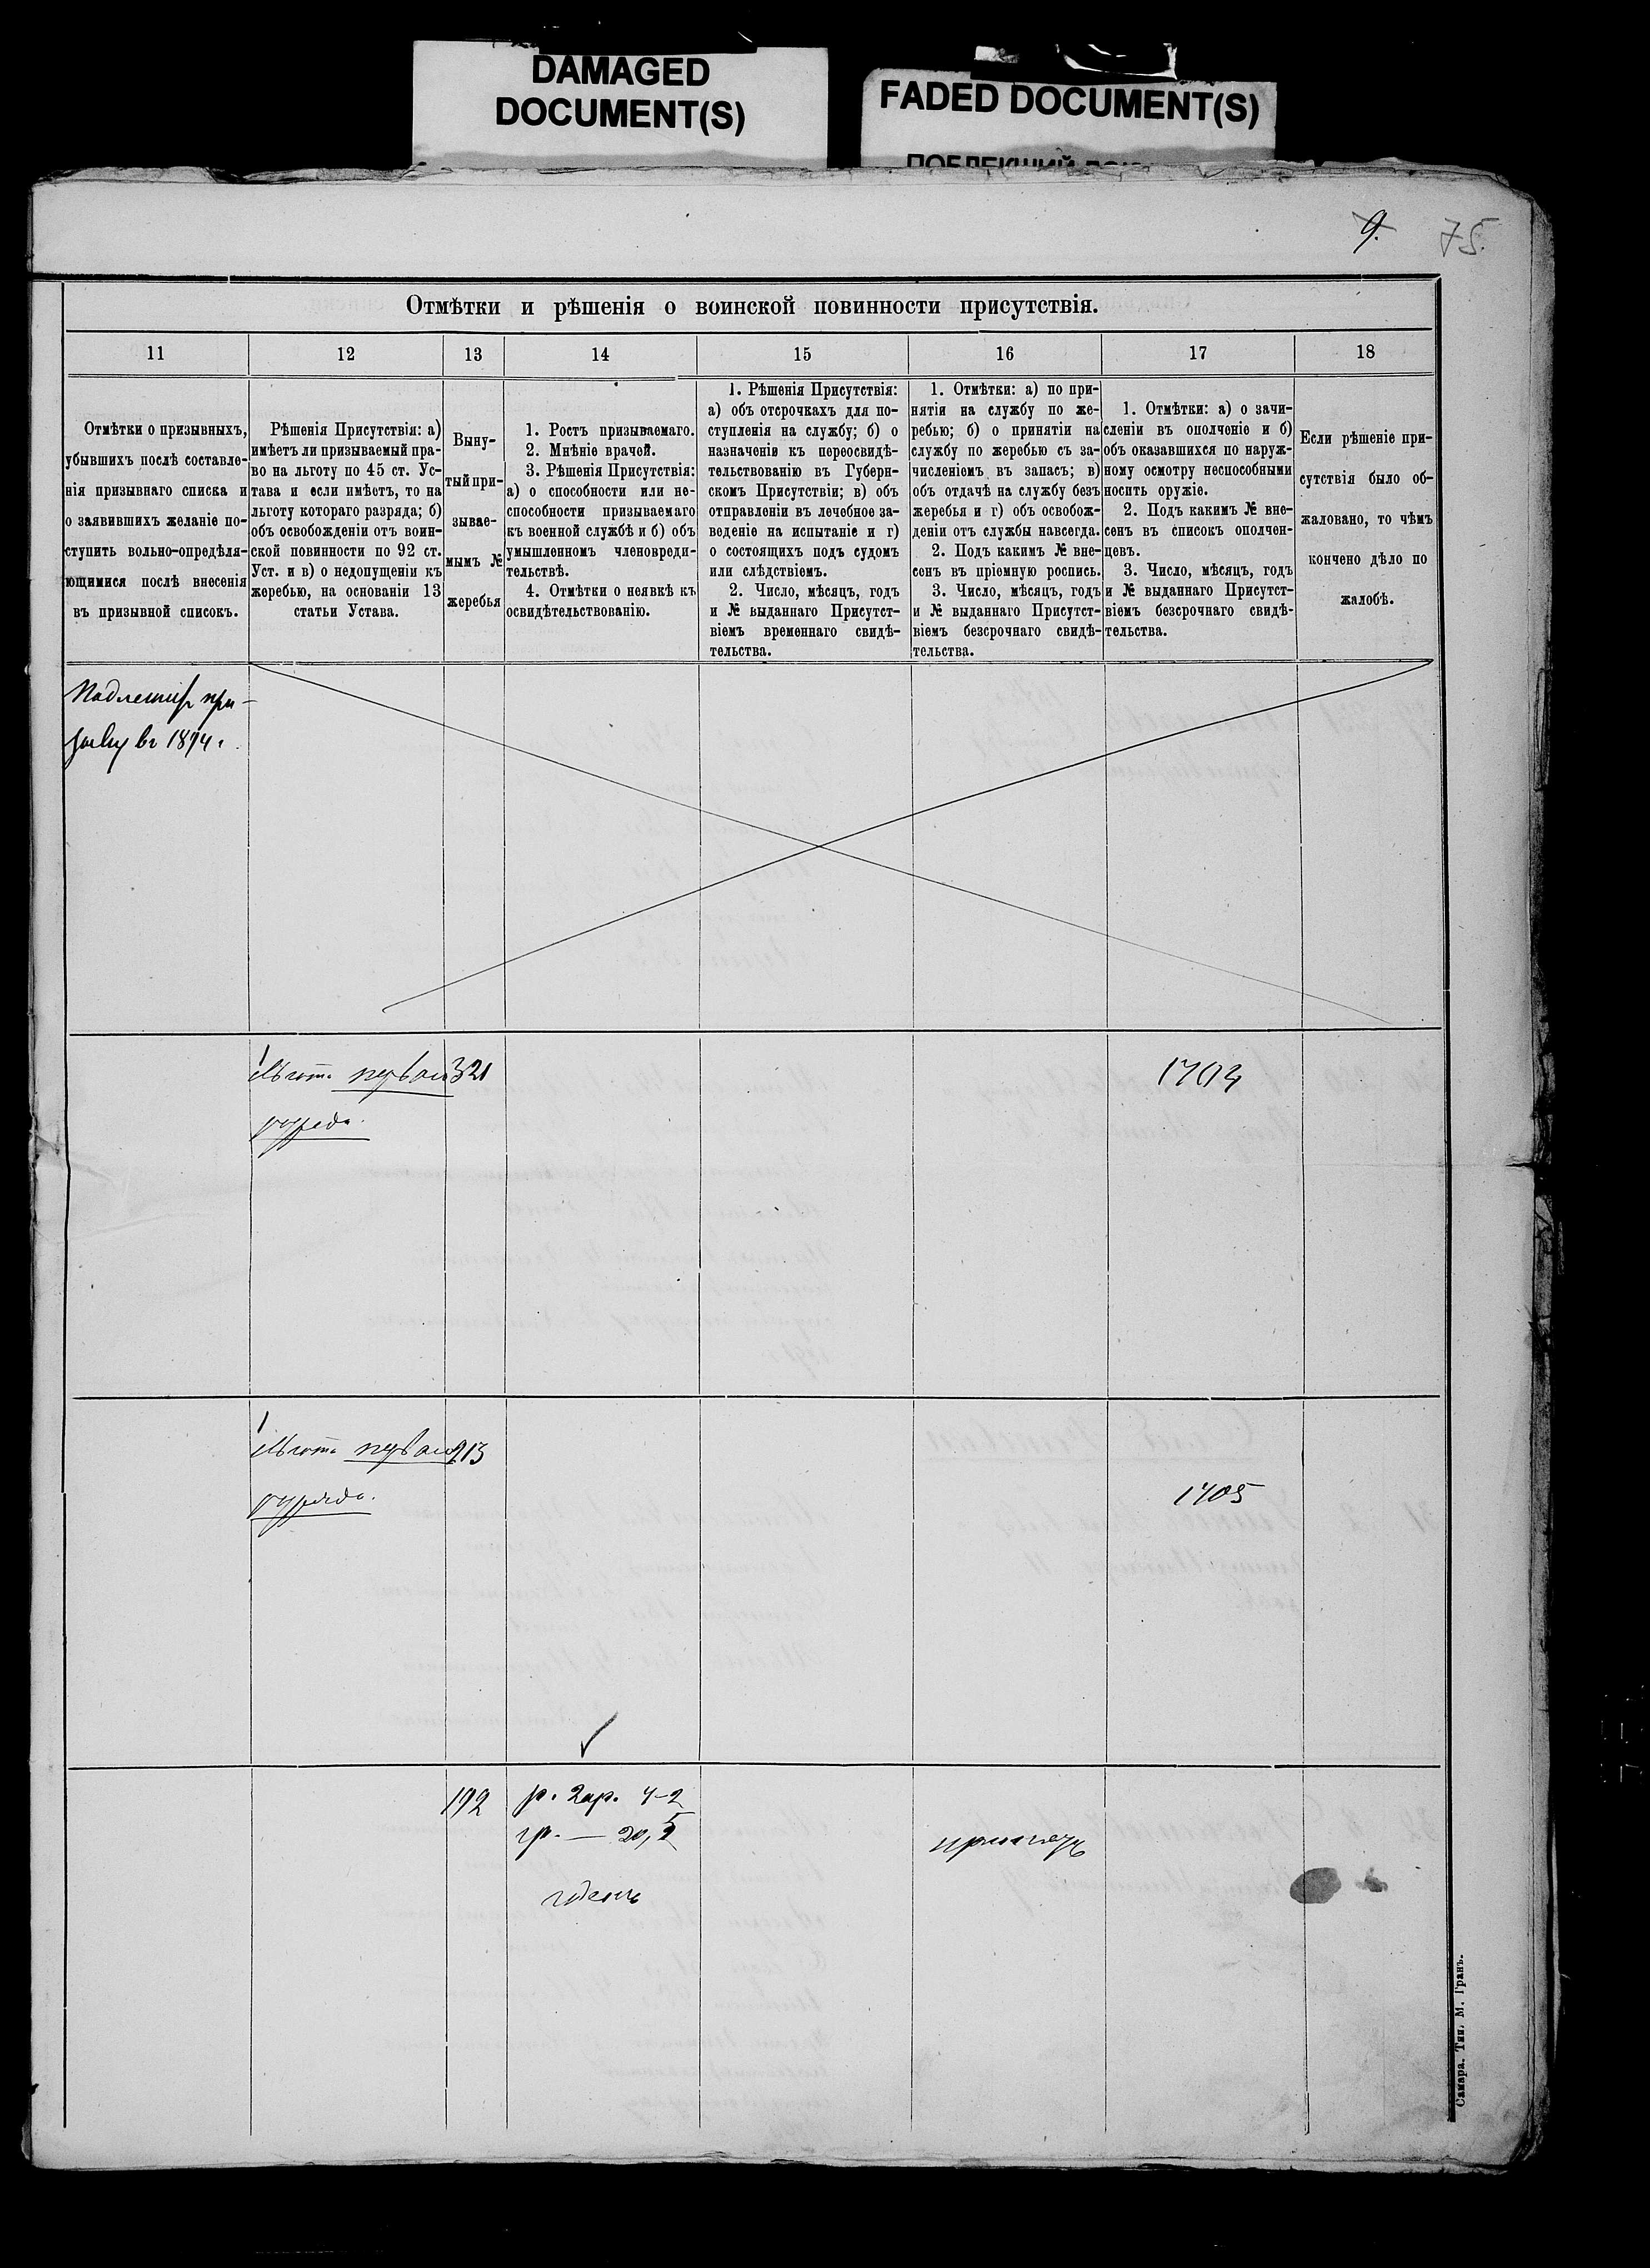 DAMAGED
DOCUMENT(S)
FADED DOCUMENT(S)
9. 75.
Отмѣтки и рѣшенія о воинской повинности присутствія.
11 12 13 14 15 16 17 18
Отмѣтки о призывныхъ,
убывшихъ послѣ составле-
нія призывнаго списка и
о заявившихъ желаніе по-
ступить вольно-опредѣля-
ющимися послѣ внесенія
въ призывной списокъ.
Рѣшенія Присутствія: а)
имѣетъ ли призываемый пра-
во на льготу по 45 ст. Ус-
тава и если имѣетъ, то на
льготу котораго разряда; б)
объ освобожденіи отъ воин-
ской повинности по 92 ст.
Уст. и в) о недопущеніи къ
жеребью, на основаніи 13
статьи Устава.
Выну-
тый при-
зывае-
мымъ №
жеребья
1. Ростъ призываемаго.
2. Мнѣніе врачей.
3. Рѣшенія Присутствія:
а) о способности или не-
способности призываемаго
къ военной службѣ и б) объ
умышленномъ членовреди-
тельствѣ.
4. Отмѣтки о неявкѣ къ
освидѣтельствованію.
1. Рѣшенія Присутствія:
а) объ отсрочкахъ для по-
ступленія на службу; б) о
назначеніи къ переосвидѣ-
тельствованію въ Губерн-
скомъ Присутствіи; в) объ
отправленіи въ лечебное за-
веденіе на испытаніе и г)
о состоящихъ подъ судомъ
или слѣдствіемъ.
2. Число, мѣсяцъ, годъ
и № выданнаго Присутст-
віемъ временнаго свидѣ-
тельства.
1. Отмѣтки: а) по при-
нятіи на службу по же-
ребью; б) о принятіи на
службу по жеребью съ за-
численіемъ въ запасъ; в)
объ отдачѣ на службу безъ
жеребья и г) объ освобож-
деніи отъ службы навсегда.
2. Подъ какимъ № вне-
сенъ въ пріемную роспись.
3. Число, мѣсяцъ, годъ
и № выданнаго Присутст-
віемъ безсрочнаго свидѣ-
тельства.
1. Отмѣтки: а) о зачи-
сленіи въ ополченіе и б)
объ оказавшихся по наруж-
ному осмотру неспособными
носить оружіе.
2. Подъ какимъ № вне-
сенъ въ списокъ ополчен-
цевъ.
3. Число, мѣсяцъ, годъ
и № выданнаго Присутст-
віемъ безсрочнаго свидѣ-
тельства.
Если рѣшеніе при-
сутствія было об-
жаловано, то чѣмъ
кончено дѣло по
жалобѣ.
Подлежитъ при-
зыву въ 1894 г.
1
Льгота перваго 321 1704
разряда.
1
Льгота перваго 213
разряда. 1705
192 р. 2 ар. 4-2
гр. — 20,5
годенъ
принятъ
Самара. Тип. М. Гранъ.